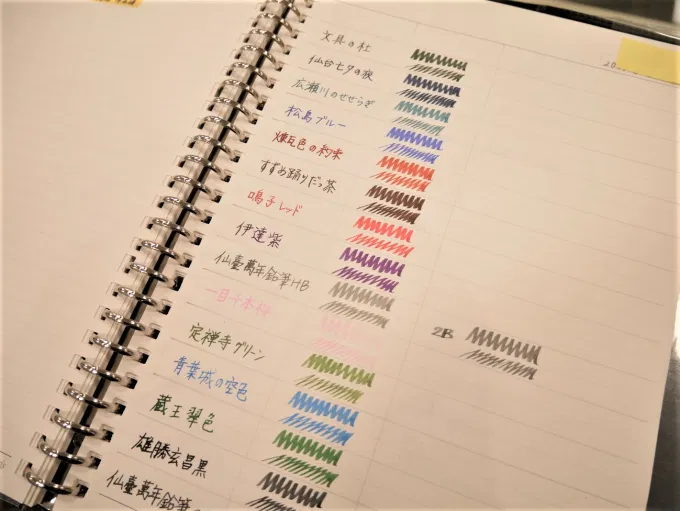 文具の杜
仙台七夕の夜
広瀬川のせせらぎ
松島ブルー
煉瓦色の約束
すずめ踊りだっ茶
鳴子レッド
伊達紫
仙臺萬年鉛筆HB
一目千本桜
定禅寺グリーン
2B
青葉城の空色
蔵王翠色
雄勝玄昌黒
仙臺萬年鉛筆